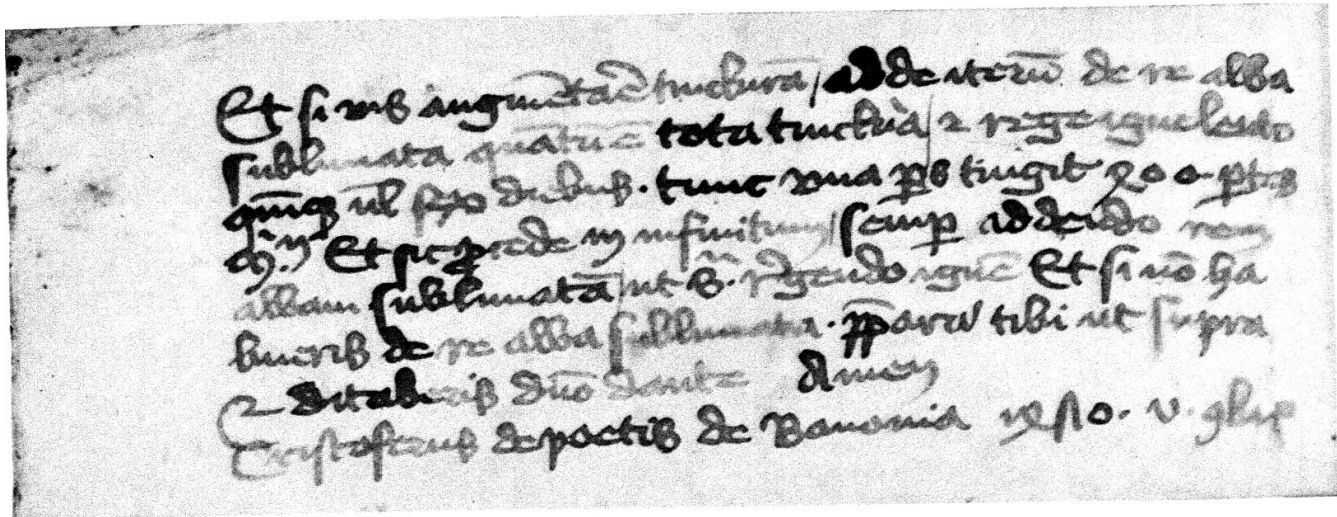 Et si vis augmētaē tincturā / adde iterū de re alba
sublimata quātū ē tota tinctura / ⁊ rege igne lento
quīqꝫ ul sex diebus · tunc una ps tingit 200 ptes
Et sic ꝓcede in infinitum / semp addēdo rem
albam sublimatā / ut s · regendo ignē Et si nō ha
bueris de re alba sublimata · ppara tibi ut supra
⁊ ditaberis dño dante Amen
Cristoferus de poetis de Bononia